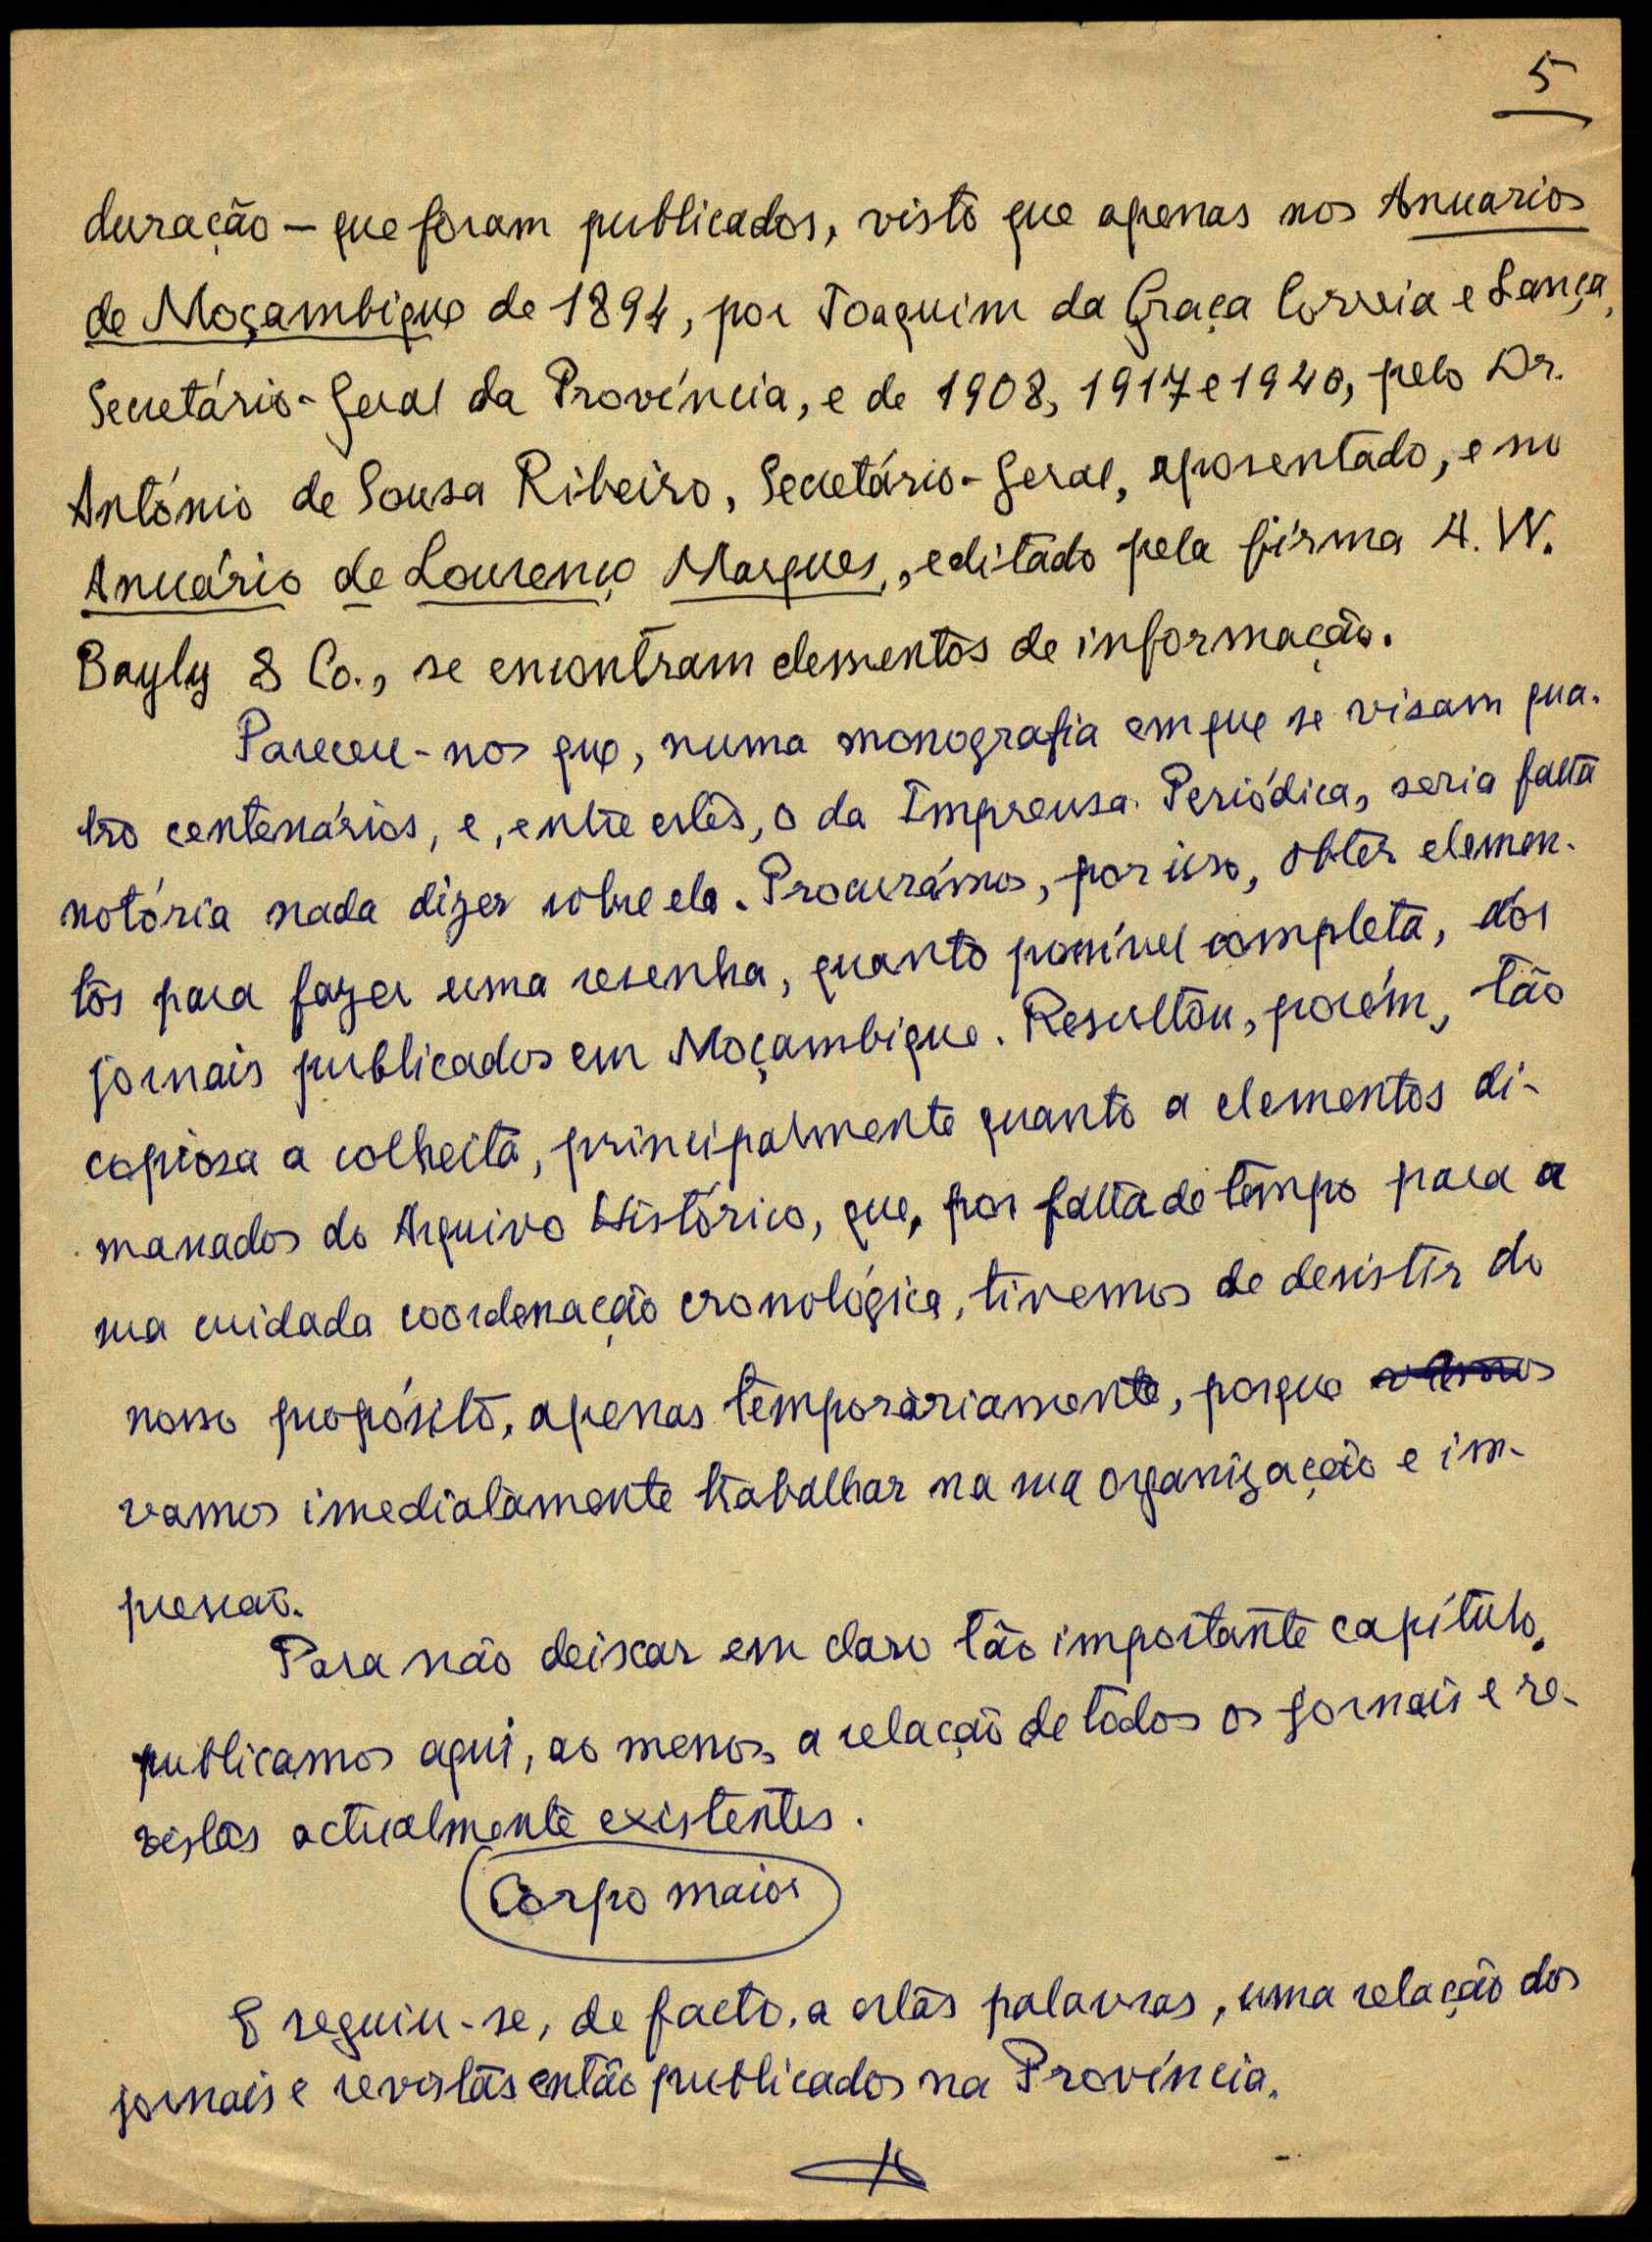 5
duração — que foram publicados, visto que apenas nos Anuarios
de Moçambique de 1894, por Joaquim da Graça Correia e Lança,
Secretário-Geral da Província, e de 1908, 1917 e 1940, pelo Dr.
António de Sousa Ribeiro, Secretário-Geral, aposentado, e no
Anuário de Lourenço Marques, editado pela firma A. W.
Bayly & Co., se encontram elementos de informação.
Pareceu-nos que, numa monografia em que se visam qua-
tro centenários, e, entre estes, o da Imprensa Periódica, seria falta
notória nada dizer sobre ela. Procurámos, por isso, obter elemen-
tos para fazer uma resenha, quanto possível completa, dos
jornais publicados em Moçambique. Resultou, porém, tão
copiosa a colheita, principalmente quanto a elementos di-
manados do Arquivo Histórico, que, por falta de tempo para a
sua cuidada coordenação cronológica, tivemos de desistir do
nosso propósito, apenas temporàriamente, porque
vamos imediatamente trabalhar na sua organização e im-
pressão.
Para não deixar em claro tão importante capítulo,
publicamos aqui, ao menos, a relação de todos os jornais e re-
vistas actualmente existentes.
Corpo maior
E seguiu-se, de facto, a estas palavras, uma relação dos
jornais e revistas então publicados na Província.